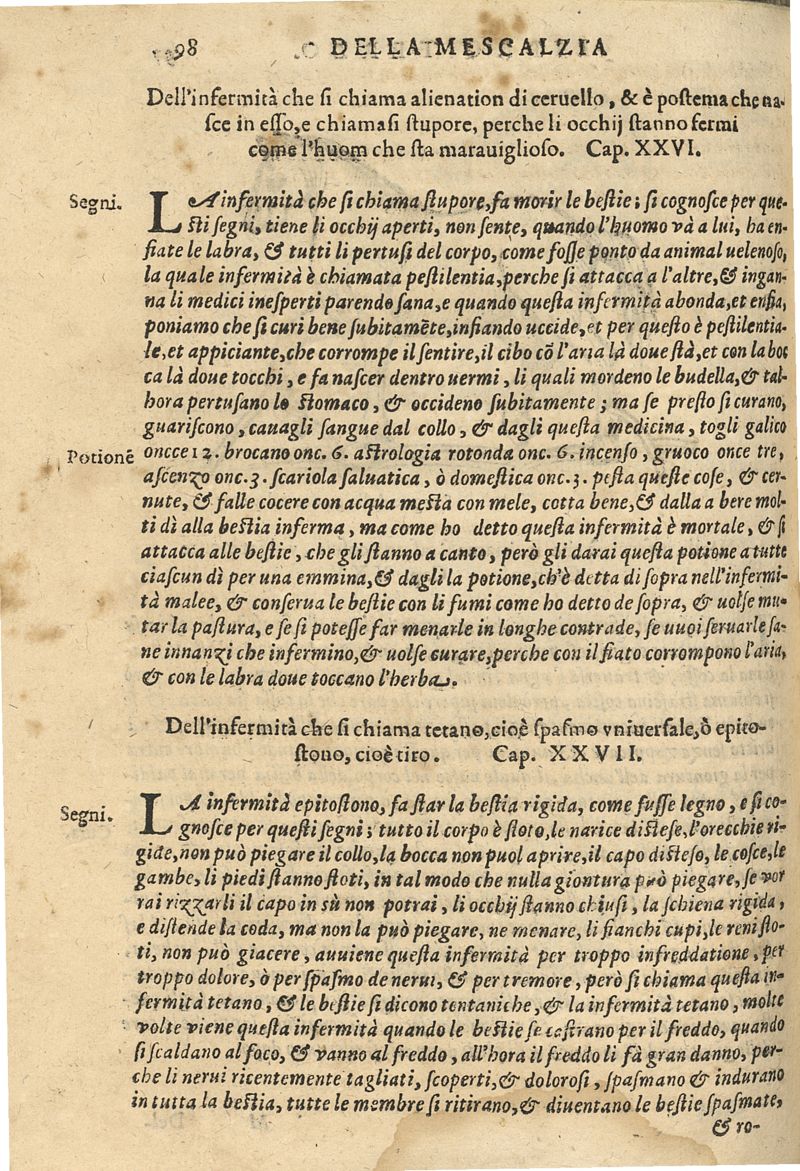 98 DELLA MESCALZIA
Dell'infermità che si chiama alienation di ceruello, & è postema che na-
sce in esso, e chiamasi stupore, perche li occhij stanno fermi
come l'huom che sta marauiglioso. Cap. XXVI.
Segni.
LA infermità che si chiama stupore, fa morir le bestie; si cognosce per que-
sti segni, tiene li occhij aperti, non sente, quando l'huomo và a lui, ha en-
fiate le labra, & tutti li pertusi del corpo, come fosse ponto da animal uelenoso,
la quale infermità è chiamata pestilentia, perche si attacca a l'altre, & ingan-
na li medici inesperti parendo sana, e quando questa infermità abonda, et enfia,
poniamo che si curi bene subitamẽte, infiando uccide, et per questo è pestilentia-
le, et appiciante, che corrompe il sentire, il cibo cõ l'aria là doue stà, et con la boc
ca là doue tocchi, e fa nascer dentro uermi, li quali mordeno le budella, & tal-
hora pertusano lo stomaco, & occideno subitamente; ma se presto si curano,
guariscono, cauagli sangue dal collo, & dagli questa medicina, togli galico
Potionẽ
oncce 12. brocano onc. 6. astrologia rotonda onc. 6. incenso, gruoco once tre,
ascenzo onc. 3. scariola saluatica, ò domestica onc. 3. pesta queste cose, & cer-
nute, & falle cocere con acqua mesta con mele, cotta bene, & dalla a bere mol-
ti dì alla bestia inferma, ma come ho detto questa infermità è mortale, & si
attacca alle bestie, che gli stanno a canto, però gli darai questa potione a tutte
ciascun dì per una emmina, & dagli la potione, ch'è detta di sopra nell'infermi-
tà malee, & conserua le bestie con li fumi come ho detto de sopra, & uolse mu-
tar la pastura, e se si potesse far menarle in longhe contrade, se uuoi seruarle sa-
ne innanzi che infermino, & uolse curare, perche con il fiato corrompono l'aria,
& con le labra doue toccano l'herba.
Dell'infermità che si chiama tetano, cioè spasmo vniuersale, ò epito-
stono, cioè tiro. Cap. XXVII.
Segni.
LA infermità epitostono, fa star la bestia rigida, come fusse legno, e si co-
gnosce per questi segni; tutto il corpo è stoto, le narice distese, l'orecchie ri-
gide, non può piegare il collo, la bocca non puol aprire, il capo disteso, le cosce, le
gambe, li piedi stanno stoti, in tal modo che nulla giontura può piegare, se vor
rai rizzarli il capo in sù non potrai, li occhij stanno chiusi, la schiena rigida,
e distende la coda, ma non la può piegare, ne menare, li fianchi cupi, le reni sto-
ti, non può giacere, auuiene questa infermità per troppo infreddatione, per
troppo dolore, ò per spasmo de nerui, & per tremore, però si chiama questa in-
fermità tetano, & le bestie si dicono tentaniche, & la infermità tetano, molte
volte viene questa infermità quando le bestie se castrano per il freddo, quando
si scaldano al foco, & vanno al freddo, all'hora il freddo li fà gran danno, per-
che li nerui ricentemente tagliati, scoperti, & dolorosi, spasmano & indurano
in tutta la bestia, tutte le membre si ritirano, & diuentano le bestie spasmate,
& ro-